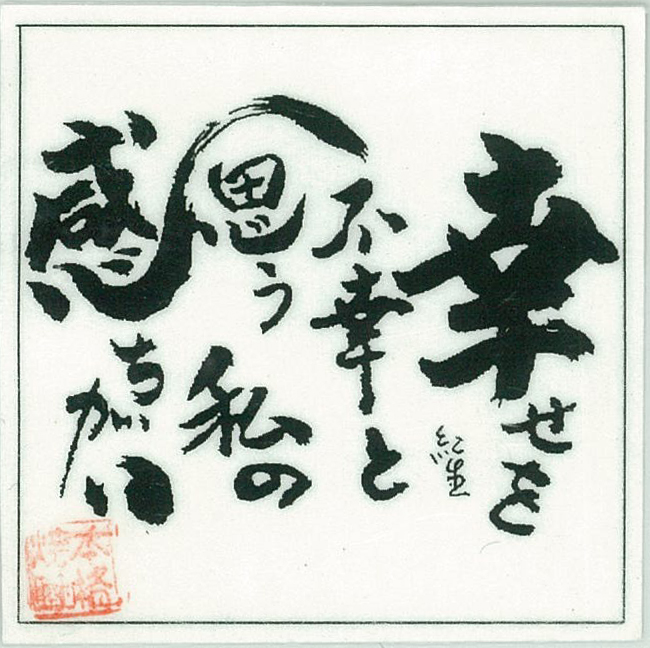 幸せを
不幸と
思う
私の
感ちがい